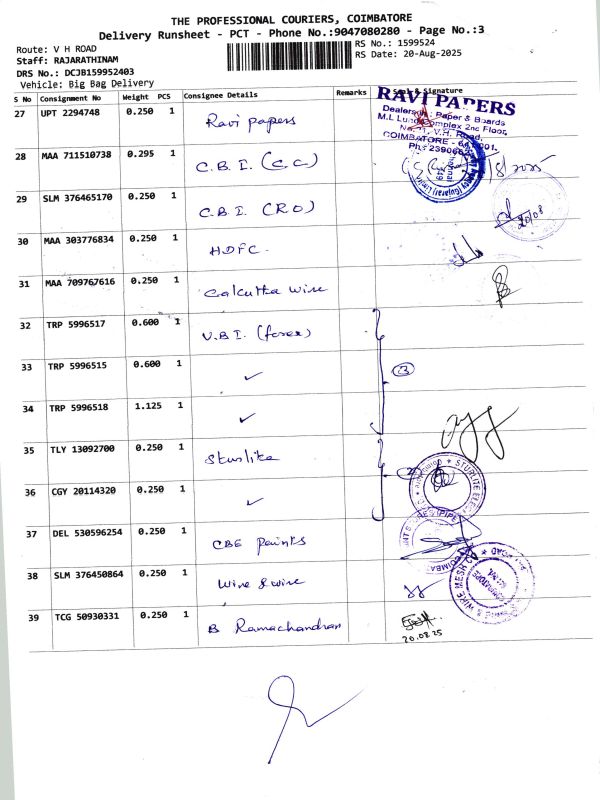 THE PROFESSIONAL COURIERS, COIMBATORE
Delivery Runsheet - PCT - Phone No.:9047080280 - Page No.:3
Route: V H ROAD
RS No.: 1599524
Staff: RAJARATHINAM
RS Date: 20-Aug-2025
DRS No.: DCJB159952403
Vehicle: Big Bag Delivery
S No Consignment No Weight PCS Consignee Details Remarks Seal & Signature
27 UPT 2294748 0.250 1 Ravi papers
RAVI PAPERS
Dealers in: Paper & Boards
2nd Floor,
V.H. Road,
COIMBATORE
28 MAA 711510738 0.295 1 C.B.I. (C.C)
29 SLM 376465170 0.250 1 C.B.I. (RO)
20/08
30 MAA 303776834 0.250 1 HDFC.
31 MAA 709767616 0.250 1 Calcutta wire
32 TRP 5996517 0.600 1 U.B.I. (forex)
33 TRP 5996515 0.600 1 ✓
3
34 TRP 5996518 1.125 1 ✓
35 TLY 13092700 0.250 1 Sturlite
36 CGY 20114320 0.250 1 ✓
37 DEL 530596254 0.250 1 CBE paints
38 SLM 376450864 0.250 1 Wire & wire
WIRE MESH
39 TCG 50930331 0.250 1 B Ramachandran
20.08.25